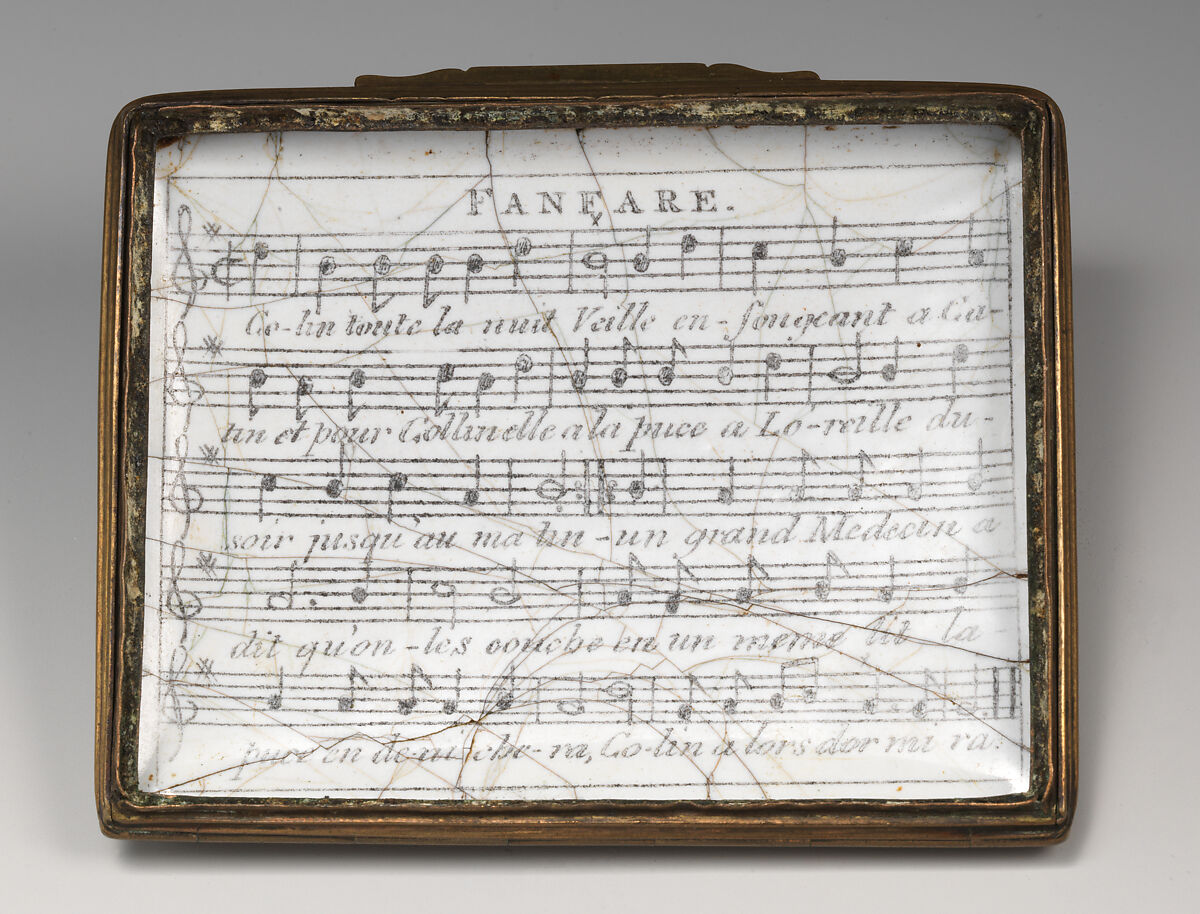 FANFARE.
Co-lin toute la nuit Veille en-songeant a Ca-
tin et pour Collinelle a la puce a Lo-reille du-
soir jusqu'au ma tin -un grand Medecin a
dit qu'on -les couche en un meme lit la-
puce en demiche-ra, Co-lin a lors dor mi ra.